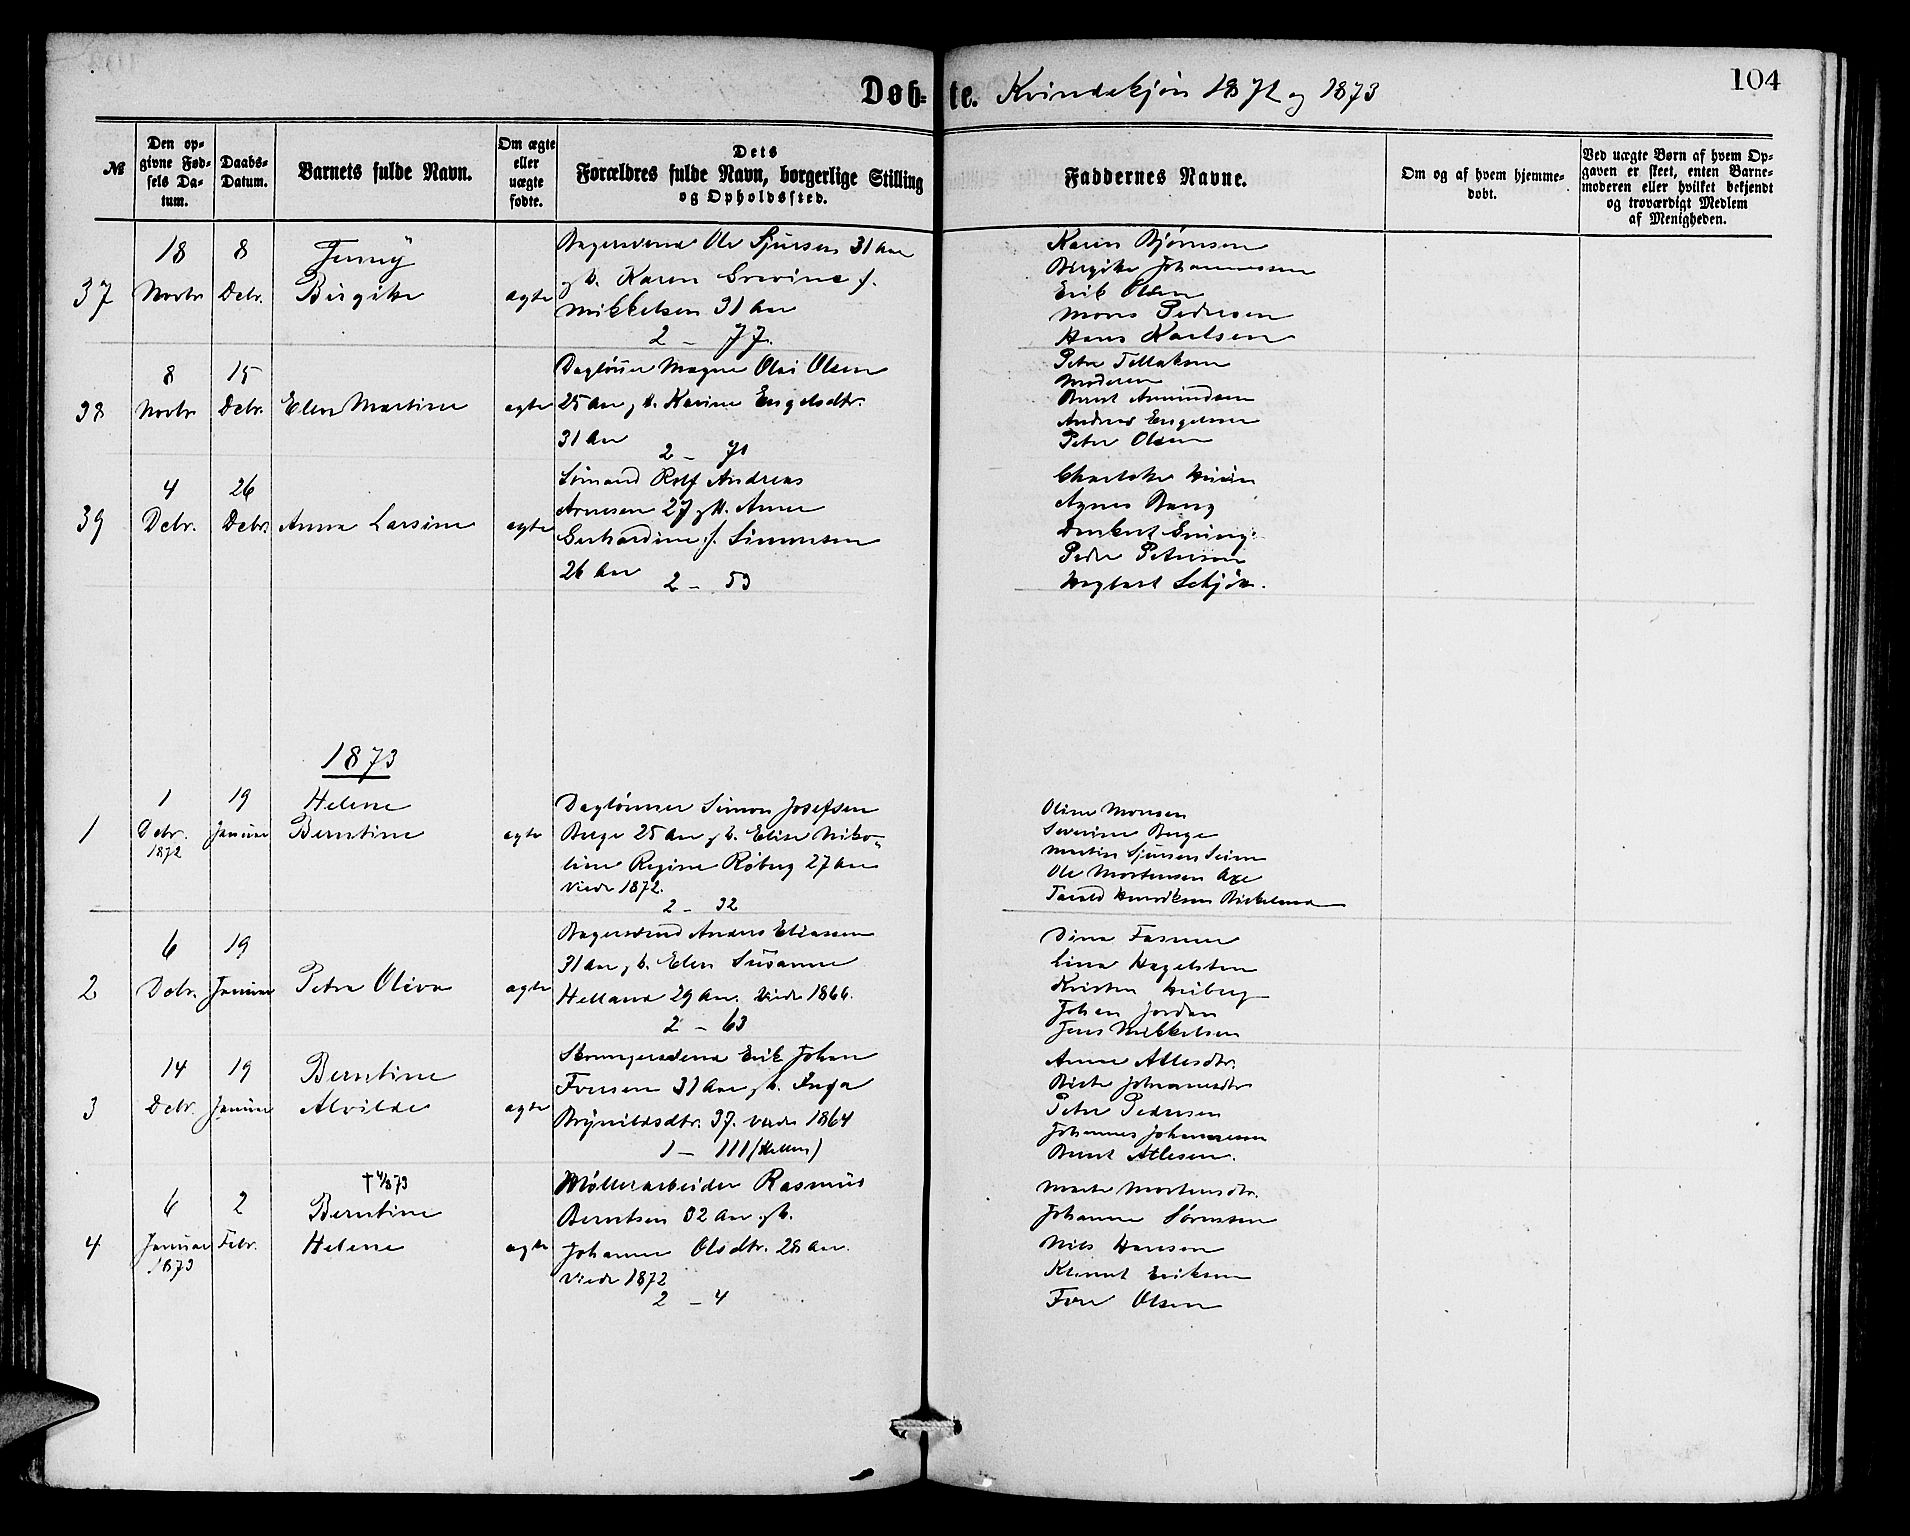 Døbte. Kvindekjøn 1872 og 1873
104
№
Den opgivne Fødsels Datum.
Daabs-Datum.
Barnets fulde Navn.
Om ægte eller uægte fødte.
Dets Forældres fulde Navn, borgerlige Stilling og Opholdssted.
Faddernes Navne.
Om og af hvem hjemmedøbt.
Ved uægte Børn af hvem Opgaven er skeet, enten Barnemoderen eller hvilket bekjendt og troværdigt Medlem af Menigheden.
37
18 Novbr
8 Debr.
Jenny Birgitte
ægte
Bagersvend Ole Sjursen 31 Aar
g h. Karen Severine f.
Mikkelsen 31 Aar
2 - 77.
Karen Bjørnsen
Birgitte Johannessen
Erik Olsen
Mons Pedersen
Hans Karlsen
38
8 Novbr
15 Debr.
Elen Martine
ægte
Dagløner Magne Olai Olsen
25 Aar g h. Karine Engelsdtr.
31 Aar
2 - 71
Petre Tollaksen
Moderen
Bernt Amundsen
Andreas Engelsen
Peter Olsen
39
4 Debr.
26 Debr.
Anna Larsine
ægte
Sømand Rolf Andreas
Arnesen 27 g h. Anne
Gerhardine f. Simonsen
26 Aar
2 - 53
Charlotte
Agnes Bang
Peder Petersen
Hagbart Schjøtt.
1873
1
1 Debr. 1872
19 Januar
Helene Berntine
ægte
Dagløner Simon Josefsen
Berge 25 Aar g h. Elise Niko-
line Regine Røberg 27 Aar
viede 1872.
2 - 32
Oline Monsen
Severine Berge
Martin Sjursen Seim
Ole Mortensen Axe
Tarald Henriksen Birkeland
2
6 Debr.
19 Januar
Petra Oliva
ægte
Bagersvend Anders Eliassen
31 Aar g h. Elen Susanne
Helland 29 Aar. viede 1866.
2 - 63
Dina Fasmer
Lina Hagelsten
Kristen Heiberg
Johan Jordan
Jens Mikkelsen
3
14 Debr.
19 Januar
Berntine Alvilde
ægte
Erik Johan
Iversen 31 Aar g h. Inga
Brynildsdtr. 37. viede 1864
1 - 111 (Hellen)
Anne Atlesdtr.
Birte Johannesdtr
Peter Pedersen
Johannes Johannessen
Bernt Atlesen.
4
6 Januar 1873
2 Febr.
† 4/8 73
Berntine Helene
ægte
Møllerarbeider Rasmus
Berntsen 32 Aar g h.
Johanne Olsdtr. 28 Aar.
viede 1872
2 - 4
Marte Mortensdtr.
Johanne Sørensen
Nils Hansen
Klemet Eriksen
Tore Olsen